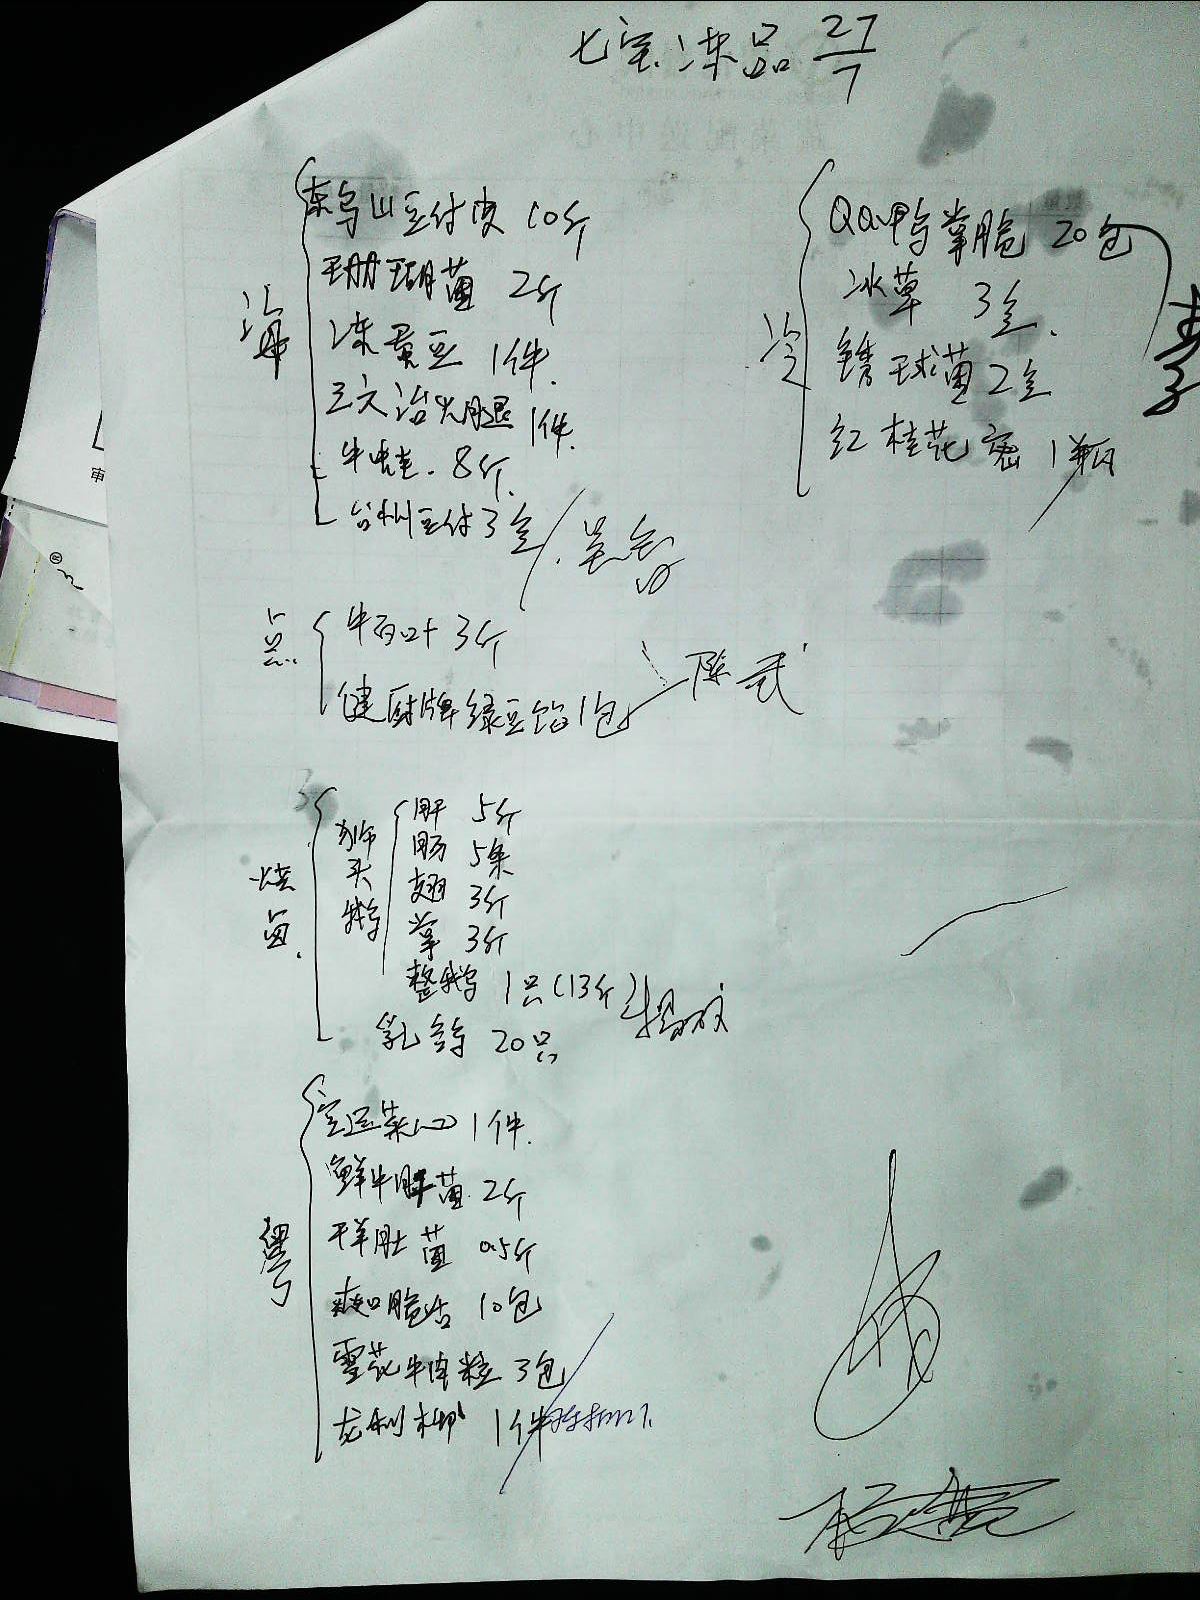 七宝冻品 27/7
海
东乌山豆付皮 10斤
珊瑚菌 2斤
冻蚕豆 1件.
三文治火腿 1件.
牛哇. 8斤.
台州豆付 3盒
冷
QQ鸭掌脆 20包
冰草 3盒.
锈球菌 2盒
红桂花密 1瓶
李子
点
牛百叶 3斤
健厨牌绿豆馅 1包
陈武
烧卤.
狮头鹅
肝 5斤
肠 5条
翅 3斤
掌 3斤
整鹅 1只(13斤)
乳鸽 20只
粤
空运菜心 1件.
鲜牛肝菌 2斤
干羊肚菌 0.5斤
爽口脆舌 10包
雪花牛肉粒 3包
龙利柳 1件